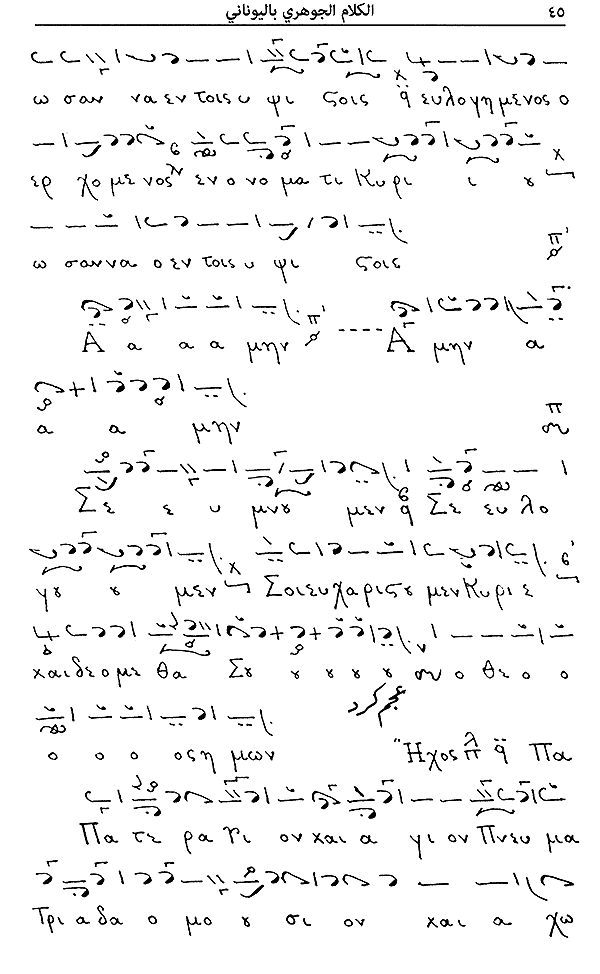 ٤٥ الكلام الجوهري باليوناني
ω σαν να εν τοις υ ψι ςοις ευλογημενος ο
ερ χο με νος εν ο νο μα τι Κυρι ι ȣ
ω σαν να ο εν τοις υ ψι ςοις
Α α α α μην Α μην α
α α μην
Σε ε υ μνȣ μεν Σε ευ λο
γȣ ȣ μεν Σοι ευ χα ρις ȣ μεν Κυρι ε
και δε ο με θα Σȣ ȣ ȣ ȣ ȣ ο θε ο ο
ο ο ο ος η μων عجم كرد Ἦχος Πα
Πα τε ρα Υι ον και α γι ον Πνευ μα
Τρι α δα ο μο ȣ σι ον και α χω